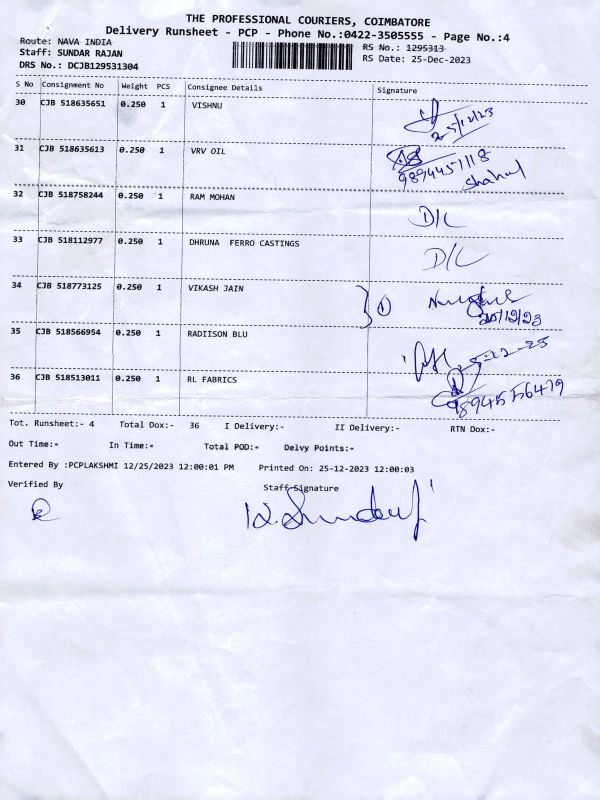 THE PROFESSIONAL COURIERS, COIMBATORE
Delivery Runsheet - PCP - Phone No.:0422-3505555 - Page No.:4
Route: NAVA INDIA
RS No.: 1295313
Staff: SUNDAR RAJAN
RS Date: 25-Dec-2023
DRS No.: DCJB129531304
S No Consignment No Weight PCS Consignee Details Signature
30 CJB 518635651 0.250 1 VISHNU
25/12/23
31 CJB 518635613 0.250 1 VRV OIL
9894457118
Shahul
32 CJB 518758244 0.250 1 RAM MOHAN D/L
33 CJB 518112977 0.250 1 DHRUNA FERRO CASTINGS D/L
34 CJB 518773125 0.250 1 VIKASH JAIN
25/12/23
35 CJB 518566954 0.250 1 RADIISON BLU
36 CJB 518513011 0.250 1 RL FABRICS
9894556479
Tot. Runsheet:- 4 Total Dox:- 36 I Delivery:- II Delivery:- RTN Dox:-
Out Time:- In Time:- Total POD:- Delvy Points:-
Entered By :PCPLAKSHMI 12/25/2023 12:00:01 PM Printed On: 25-12-2023 12:00:03
Verified By Staff Signature